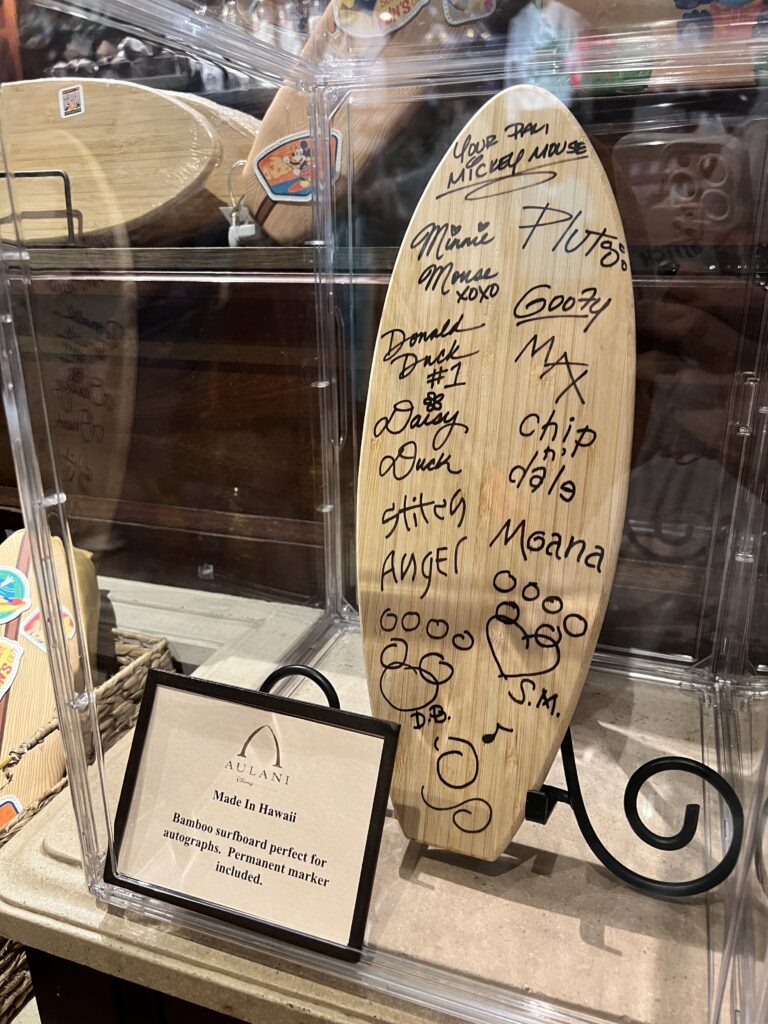 YOUR PAL
MICKEY MOUSE
Minnie
Mouse
xoxo
Donald
Duck
#1
Daisy
Duck
Stitch
ANgEL
D.B.
Pluto
Goofy
MAX
chip
'n'
dale
Moana
S.M.
AULANI
Disney
Made In Hawaii
Bamboo surfboard perfect for
autographs. Permanent marker
included.